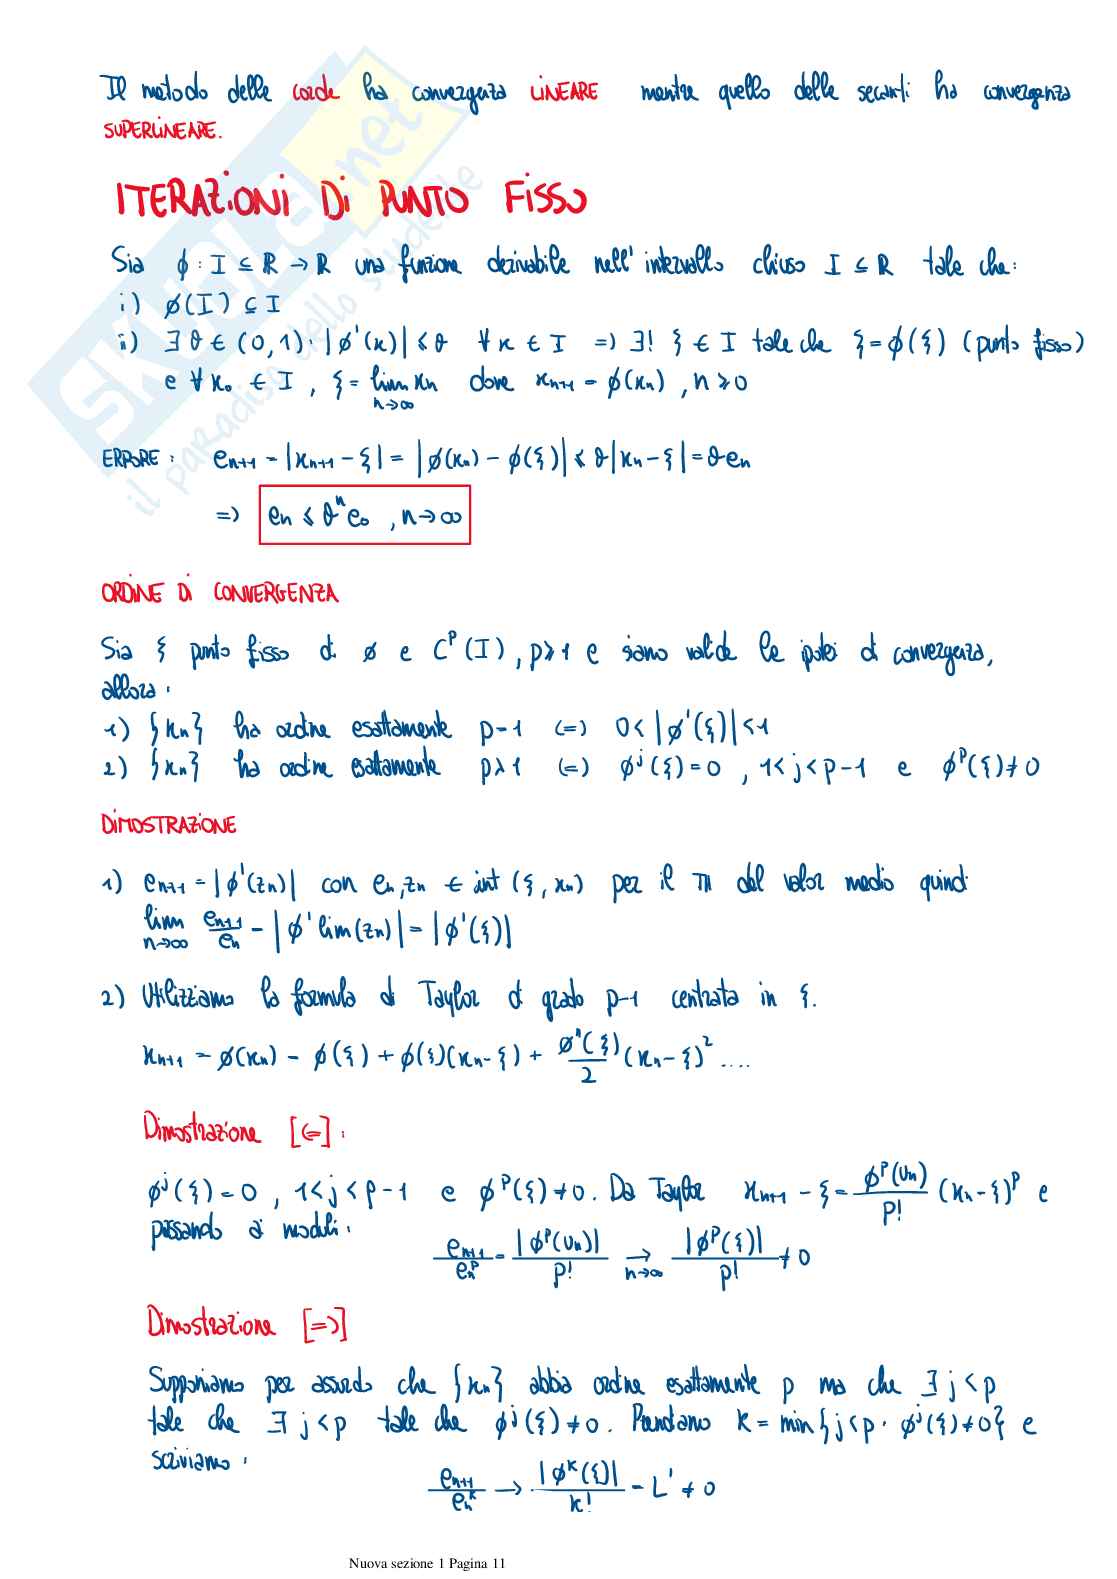 Il metodo delle corde ha convergenza LINEARE mentre quello delle secanti ha convergenza
SUPERLINEARE.
ITERAZIONI DI PUNTO FISSO
Sia ϕ: I ⊆ ℝ → ℝ una funzione derivabile nell'intervallo chiuso I ⊆ ℝ tale che:
i) ϕ(I) ⊆ I
ii) ∃ θ ∈ (0,1): |ϕ'(x)| ≤ θ ∀ x ∈ I => ∃! ξ ∈ I tale che ξ = ϕ(ξ) (punto fisso)
e ∀ x₀ ∈ I, ξ = lim xₙ dove xₙ₊₁ = ϕ(xₙ), n ≥ 0
n→∞
ERRORE: eₙ₊₁ = |xₙ₊₁ - ξ| = |ϕ(xₙ) - ϕ(ξ)| ≤ θ|xₙ - ξ| = θeₙ
=> eₙ ≤ θⁿe₀, n→∞
ORDINE DI CONVERGENZA
Sia ξ punto fisso di ϕ e Cᵖ(I), p≥1 e siano valide le ipotesi di convergenza,
allora:
1) {xₙ} ha ordine esattamente p=1 <=> 0<|ϕ'(ξ)|<1
2) {xₙ} ha ordine esattamente p>1 <=> ϕʲ(ξ)=0, 1<j<p-1 e ϕᵖ(ξ)≠0
DIMOSTRAZIONE
1) eₙ₊₁ = |ϕ'(zₙ)| con eₙ, zₙ ∈ int(ξ, xₙ) per il TH del valor medio quindi
lim eₙ₊₁/eₙ = |ϕ' lim(zₙ)| = |ϕ'(ξ)|
n→∞
2) Utilizziamo la formula di Taylor di grado p-1 centrata in ξ.
xₙ₊₁ = ϕ(xₙ) = ϕ(ξ) + ϕ(ξ)(xₙ-ξ) + ϕ''(ξ)/2 (xₙ-ξ)² ....
Dimostrazione [<=]:
ϕʲ(ξ)=0, 1<j<p-1 e ϕᵖ(ξ)≠0. Da Taylor xₙ₊₁ - ξ = ϕᵖ(uₙ)/p! (xₙ-ξ)ᵖ e
passando ai moduli:
eₙ₊₁/eₙᵖ = |ϕᵖ(uₙ)|/p! → |ϕᵖ(ξ)|/p! ≠ 0
n→∞
Dimostrazione [=>]
Supponiamo per assurdo che {xₙ} abbia ordine esattamente p ma che ∃ j<p
tale che ∃ j<p tale che ϕʲ(ξ)≠0. Prendiamo k = min{j<p: ϕʲ(ξ)≠0} e
scriviamo:
eₙ₊₁/eₙᵏ → |ϕᵏ(ξ)|/k! = L' ≠ 0
Nuova sezione 1 Pagina 11
SKUOLA.net
il paradiso dello studente